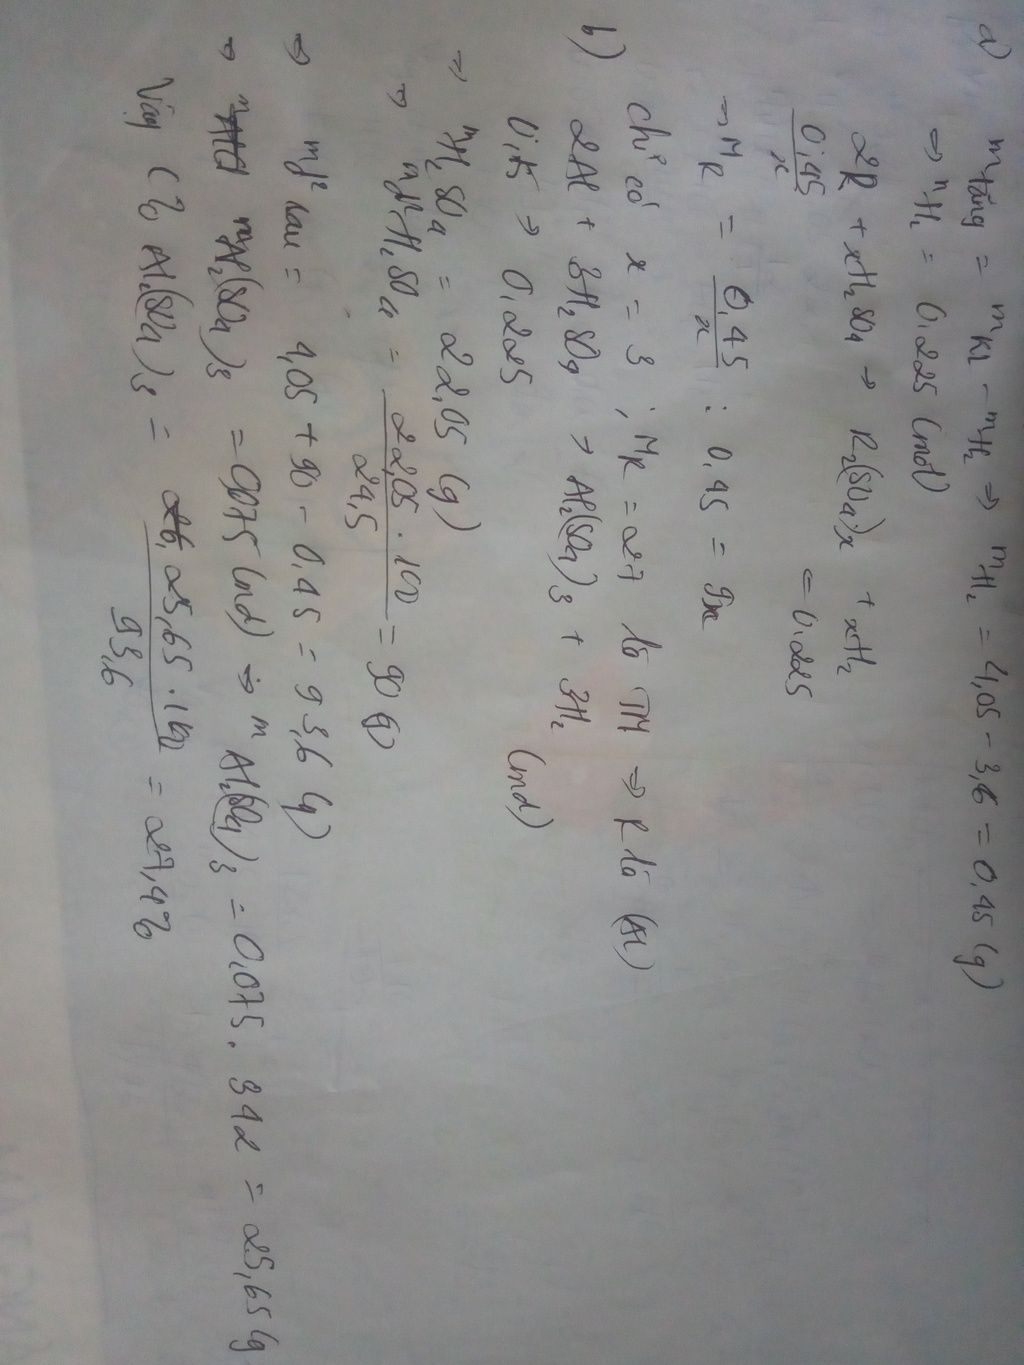 a) m tăng = m KL - m H₂ ⇒ m H₂ = 4,05 - 3,6 = 0,45 (g)
⇒ n H₂ = 0,225 (mol)
2R + xH₂SO₄ → R₂(SO₄)x + xH₂
0,45/x ← 0,225
→ M R = 0,45/x : 0,45 = 9x
chỉ có x = 3 ; M R = 27 là TM ⇒ R là (Al)
b) 2Al + 3H₂SO₄ → Al₂(SO₄)₃ + 3H₂
0,15 → 0,225 (mol)
⇒ m H₂SO₄ = 22,05 (g)
⇒ m d² H₂SO₄ = 22,05 . 100 / 24,5 = 90 (g)
⇒ m d² sau = 4,05 + 90 - 0,45 = 93,6 (g)
⇒ n Al₂(SO₄)₃ = 0,075 (mol) ⇒ m Al₂(SO₄)₃ = 0,075 . 342 = 25,65 (g
Vậy C% Al₂(SO₄)₃ = 25,65 . 100 / 93,6 = 27,4%